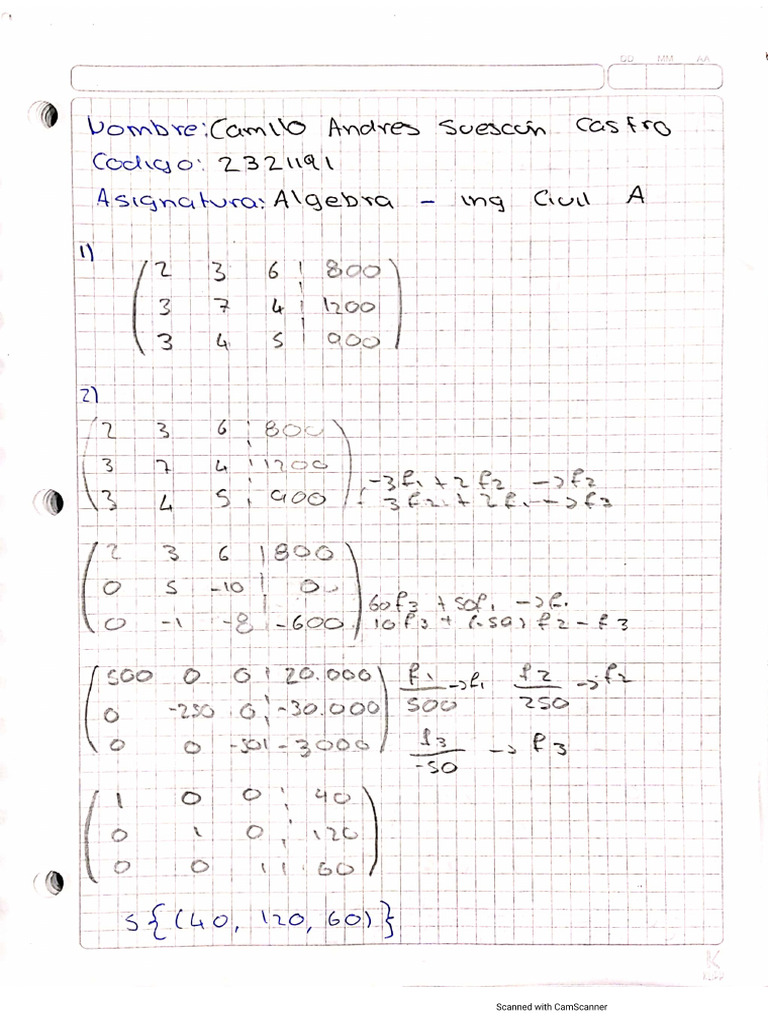 DD MM AA
Nombre: Camilo Andres Suescún Castro
Codigo: 2321191
Asignatura: Algebra - Ing Civil A
1)
2 3 6 | 800
3 7 4 | 1200
3 4 5 | 900
2)
2 3 6 | 800
3 7 4 | 1200 -3f1 + 2f2 -> f2
3 4 5 | 900 3f2 + 2f1 -> f3
2 3 6 | 800
0 5 -10 | 0
60f3 + 50f1 -> f1
0 -1 -8 | -600 10f3 + (-50) f2 - f3
500 0 0 | 20.000 f1/500 -> f1 f2/250 -> f2
0 -250 0 | -30.000
0 0 -50 | -3000 f3/-50 -> f3
1 0 0 | 40
0 1 0 | 120
0 0 1 | 60
S{(40, 120, 60)}
Scanned with CamScanner